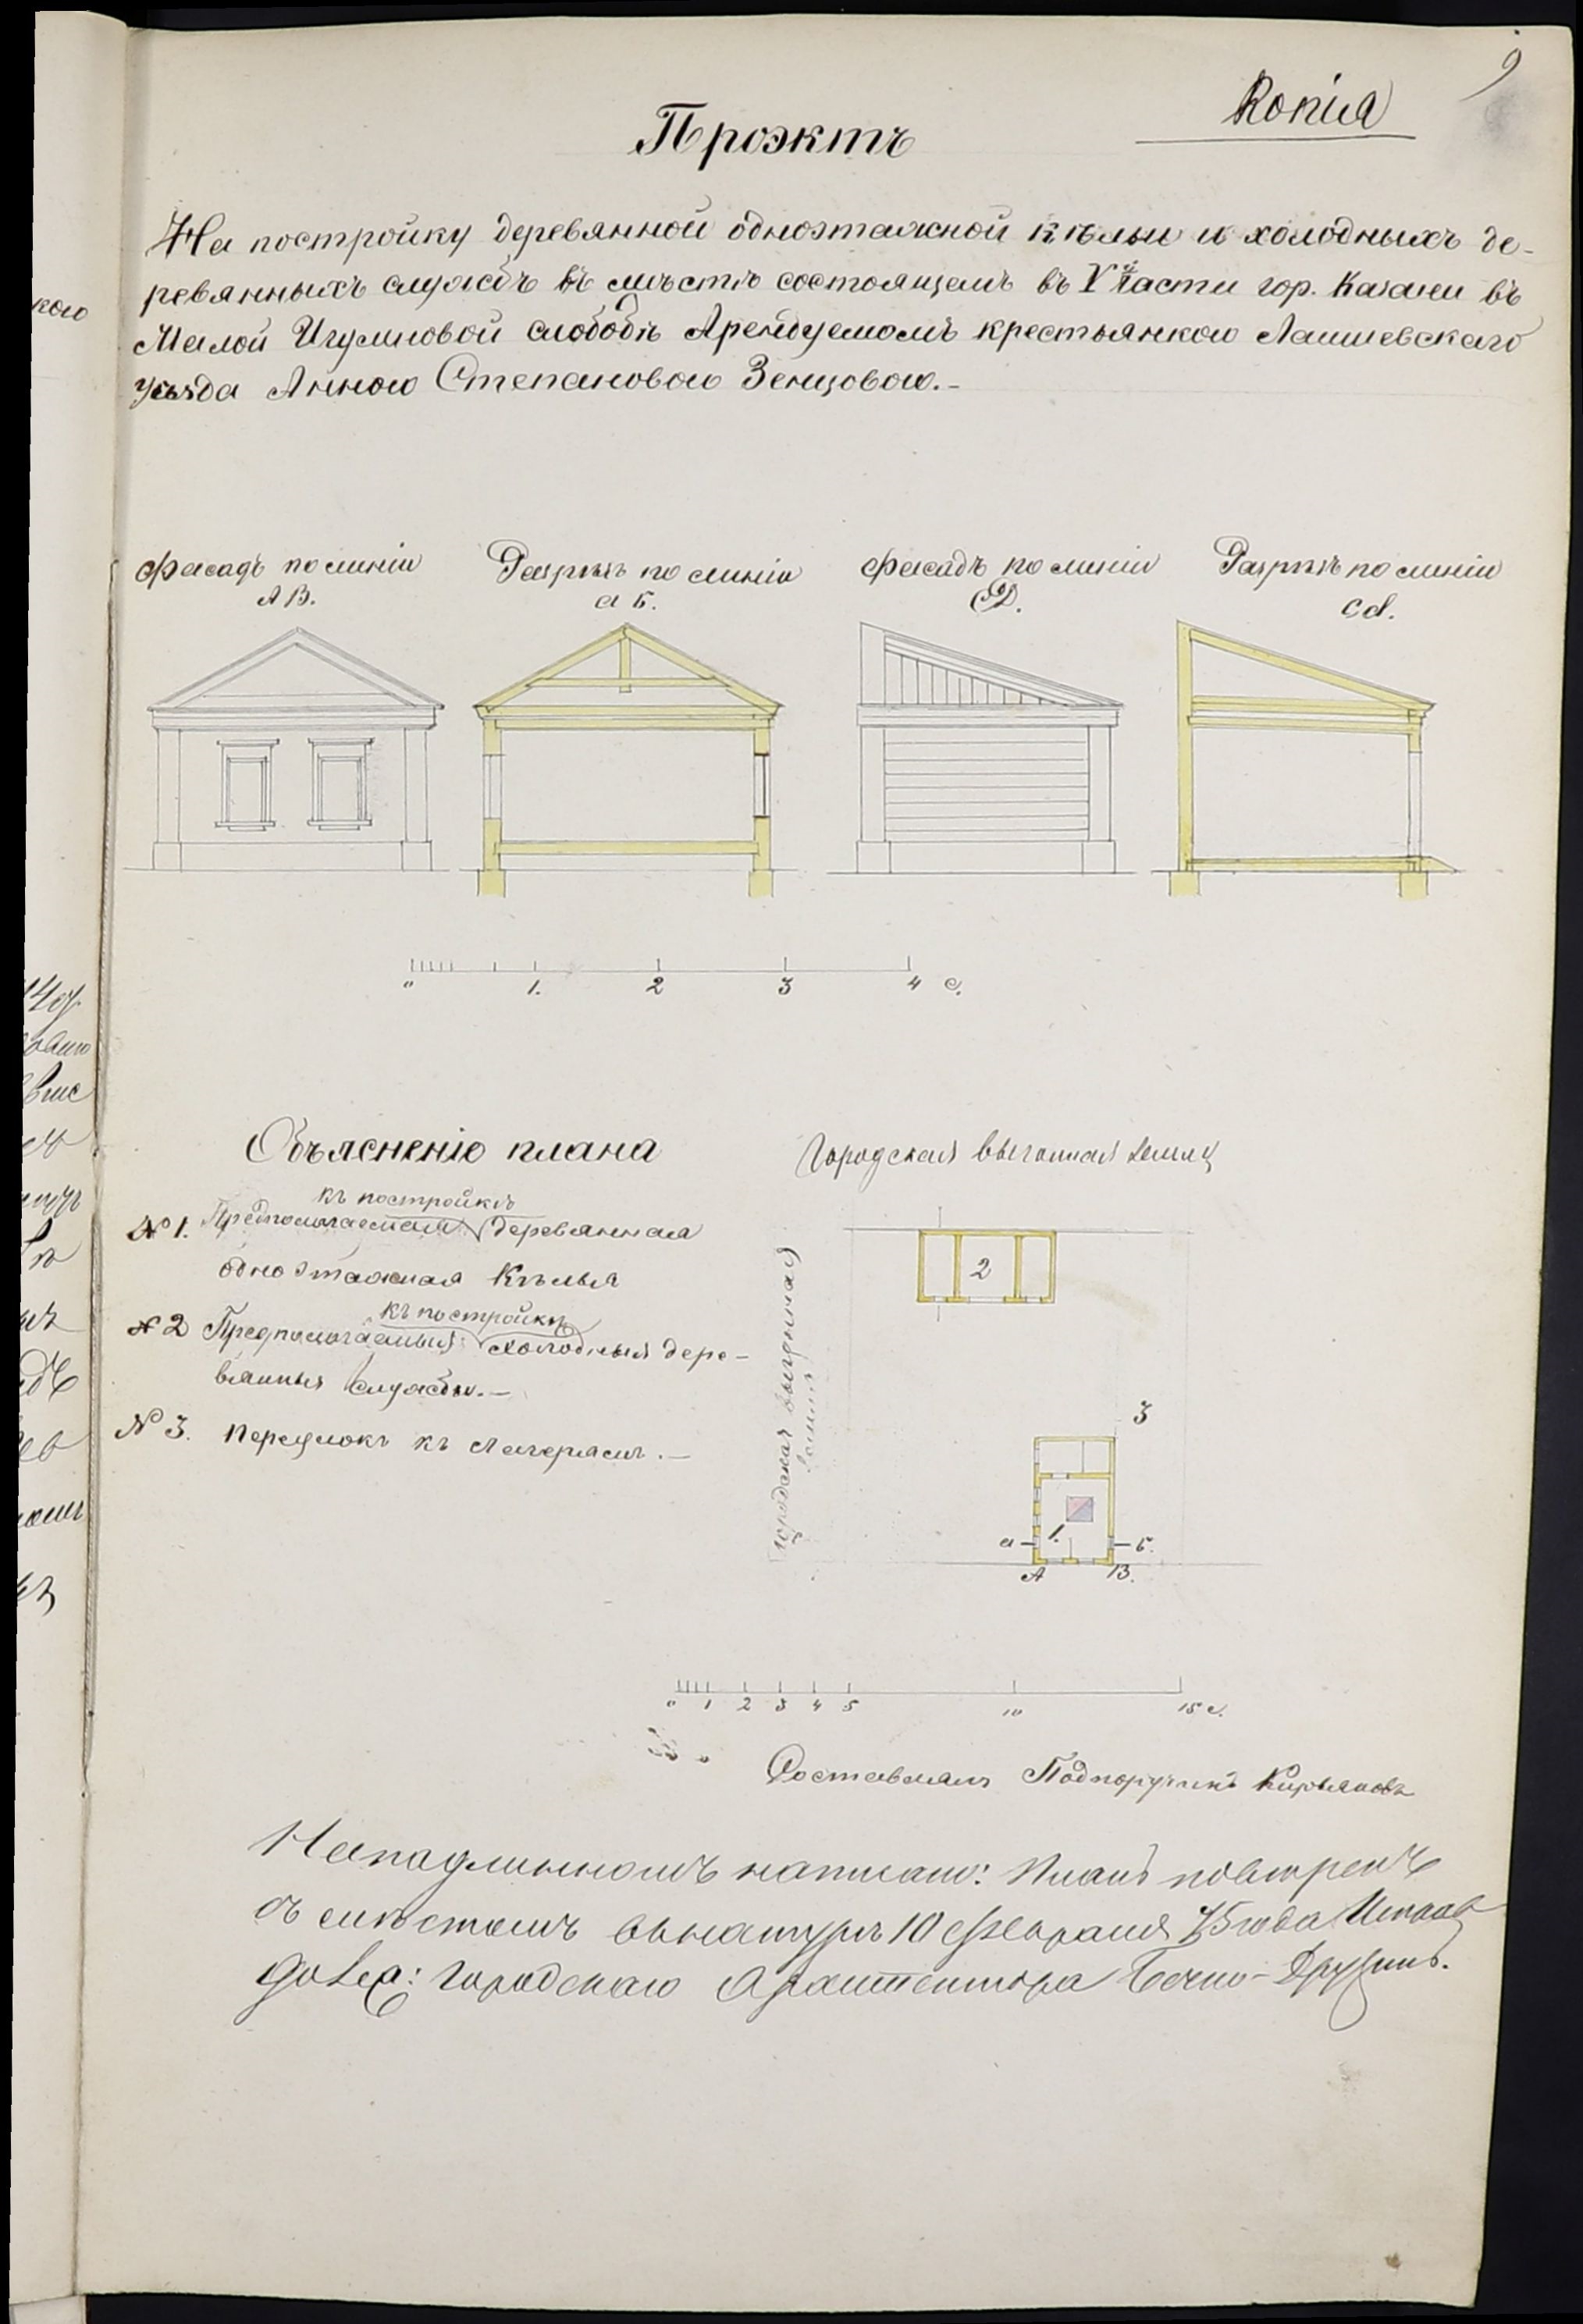 9
Копія
Проэктъ
На постройку деревянной одноэтажной кѣльи и холодныхъ де-
ревянныхъ службъ въ мѣстѣ состоящемъ въ V й части гор. Казани въ
Малой Игумновой слободѣ Арендуемомъ крестьянкою Лаишевскаго
уѣзда Анною Степановою Зенцовою.-
Фасадъ по линіи
АВ.
Разрѣзъ по линіи
а б.
Фасадъ по линіи
CD.
Разрѣзъ по линіи
cd.
0 1. 2 3 4 с.
Объясненіе плана
къ постройкѣ
№ 1. Предпологаемая деревянная
одноэтажная Кѣлья
къ постройкѣ
№ 2 Предпологаемыя холодныя дере-
вянныя службы.-
№ 3. Переулокъ къ Лагерямъ.-
Городская выгонная земля
Городская выгонная
земля
2
3
1.
а б.
А В.
0 1 2 3 4 5 10 15 с.
Составлялъ Подпоручикъ Кирьяновъ
На подлинномъ написано: Планъ повѣренъ
съ мѣстомъ въ натурѣ 10 февраля 75 года
долж: Городскаго Архитектора Бечко-Друзинъ.